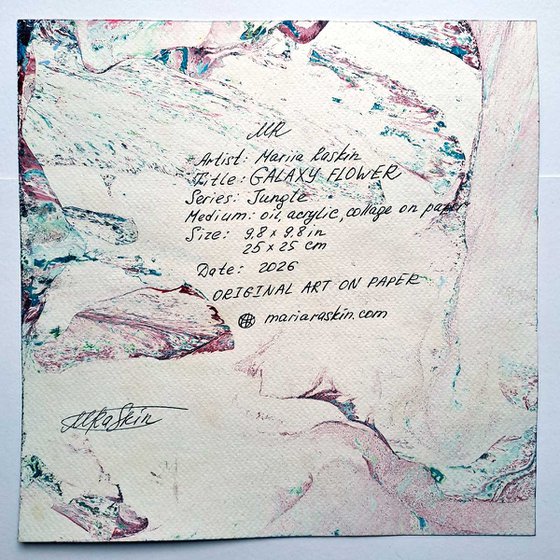 MR
Artist: Mariia Raskin
Title: GALAXY FLOWER
Series: Jungle
Medium: oil, acrylic, collage on paper
Size: 9,8 x 9.8 in
25 x 25 cm
Date: 2026
ORIGINAL ART ON PAPER
mariaraskin.com
MRaSkin